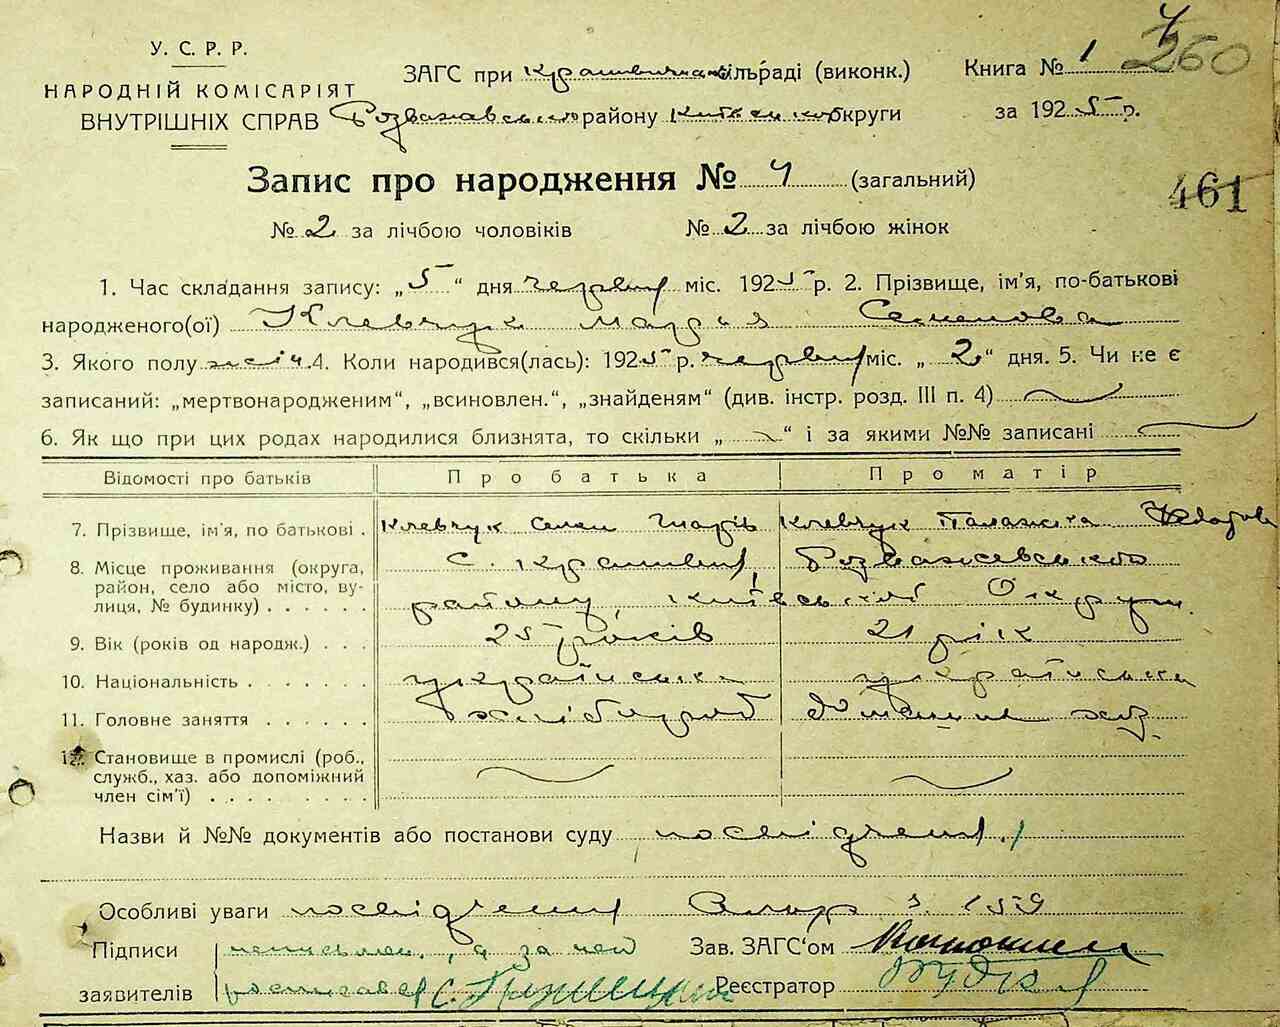 У. С. Р. Р.
НАРОДНІЙ КОМІСАРІЯТ
ВНУТРІШНІХ СПРАВ
ЗАГС при Кра сільраді (виконк.)
Розважівського району Київської округи
Книга № 1
за 1925 р.
4
260
Запис про народження № 4 (загальний)
461
№ 2 за лічбою чоловіків № 2 за лічбою жінок
1. Час складання запису: „5“ дня червня міс. 1925 р. 2. Прізвище, ім'я, по-батькові
народженого(ої) Клевчук Марья Семенова
3. Якого полу жіноч. 4. Коли народився(лась): 1925 р. червня міс. „2“ дня. 5. Чи не є
записаний: „мертвонародженим“, „всиновлен.“, „знайденям“ (див. інстр. розд. III п. 4)
6. Як що при цих родах народилися близнята, то скільки „ “ і за якими №№ записані
Відомості про батьків Про батька Про матір
7. Прізвище, ім'я, по батькові . Клевчук Семен Клевчук Палажка
8. Місце проживання (округа, район, село або місто, вулиця, № будинку) . . . . . .
с. Розважевського
району, київської Округи.
9. Вік (років од народж.) . . . 25 років 21 рік
10. Національність . . . . . . . українська українська
11. Головне заняття . . . . . . хлібороб домашнє хаз.
12. Становище в промислі (роб., служб., хаз. або допоміжний член сім'ї) . . . . . . . .
Назви й №№ документів або постанови суду посвідчення.
Особливі уваги посвідчення 159
Підписи
заявителів
неписьмен., а за неї
росписався С.
Зав. ЗАГС'ом
Реєстратор Рудка